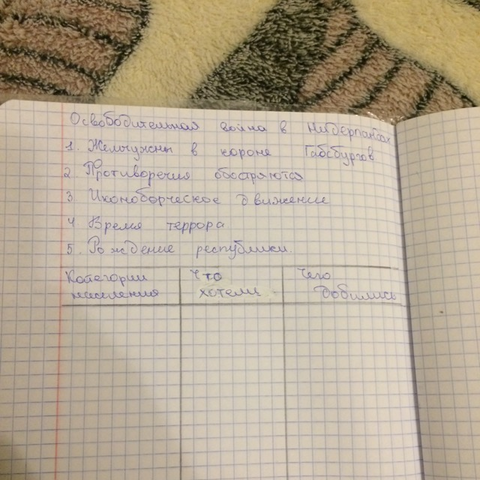 Освободительная война в Нидерландах
1 Жемчужины в короне Габсбургов
2 Противоречия обостряются
3 Иконоборческое движение
4 Время террора
5. Рождение республики
Категории населения
Что хотели
Чего добились